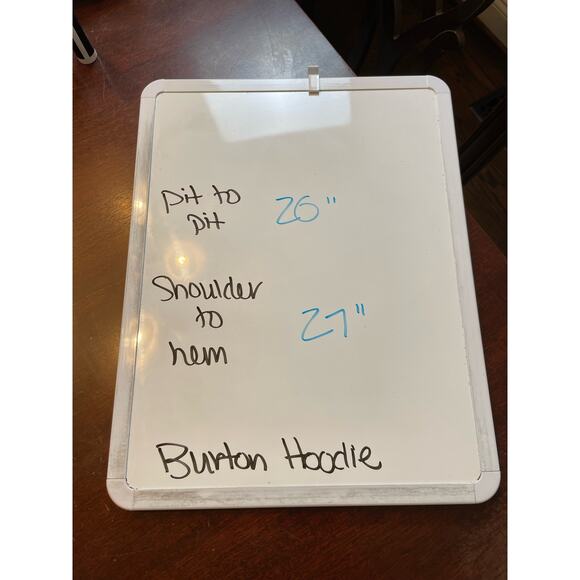 pit to 26"
pit
Shoulder
to 27"
hem
Burton Hoodie